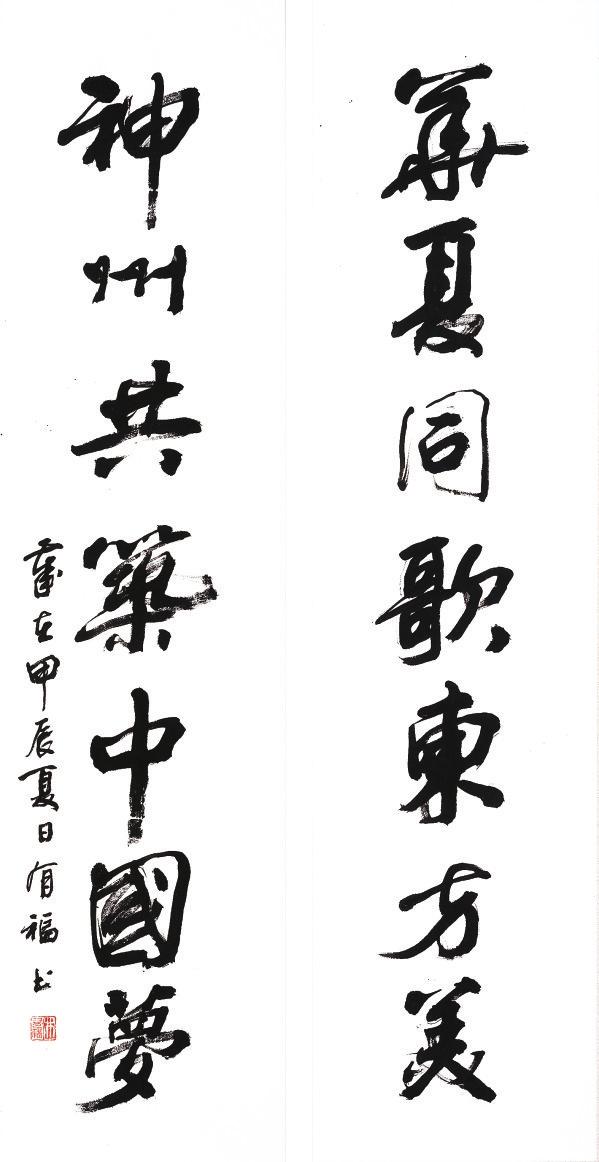 華夏同歌東方美
神州共築中國夢
歲在甲辰夏日有福书